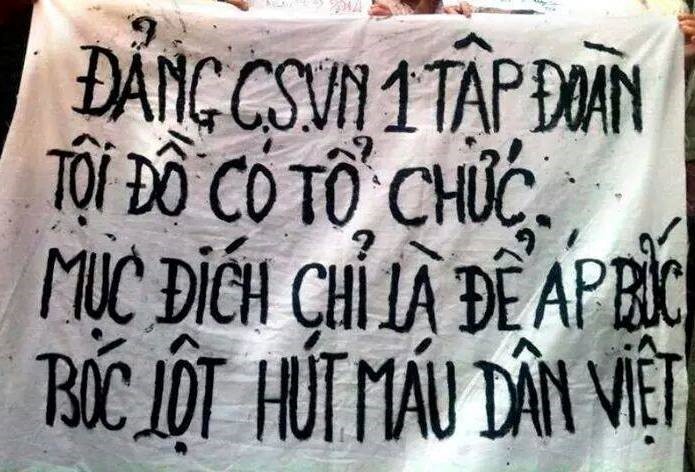 ĐẢNG C.S.VN 1 TẬP ĐOÀN
TỘI ĐỒ CÓ TỔ CHỨC.
MỤC ĐÍCH CHỈ LÀ ĐỂ ÁP BỨC
BÓC LỘT HÚT MÁU DÂN VIỆT